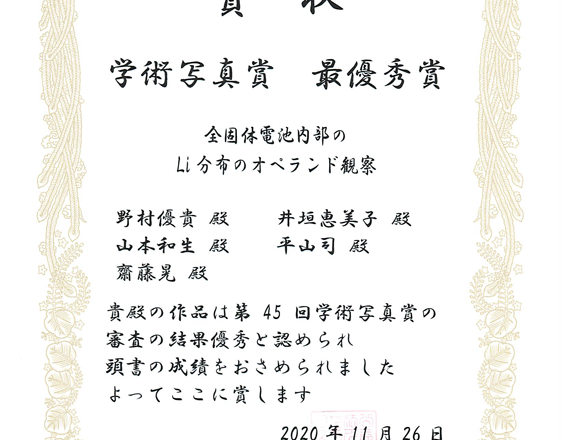 賞 状
学術写真賞 最優秀賞
全固体電池内部の
Li分布のオペランド観察
野村優貴 殿 井垣恵美子 殿
山本和生 殿 平山司 殿
齋藤晃 殿
貴殿の作品は第 45 回学術写真賞の
審査の結果優秀と認められ
頭書の成績をおさめられました
よってここに賞します
2020 年 11 月 26 日